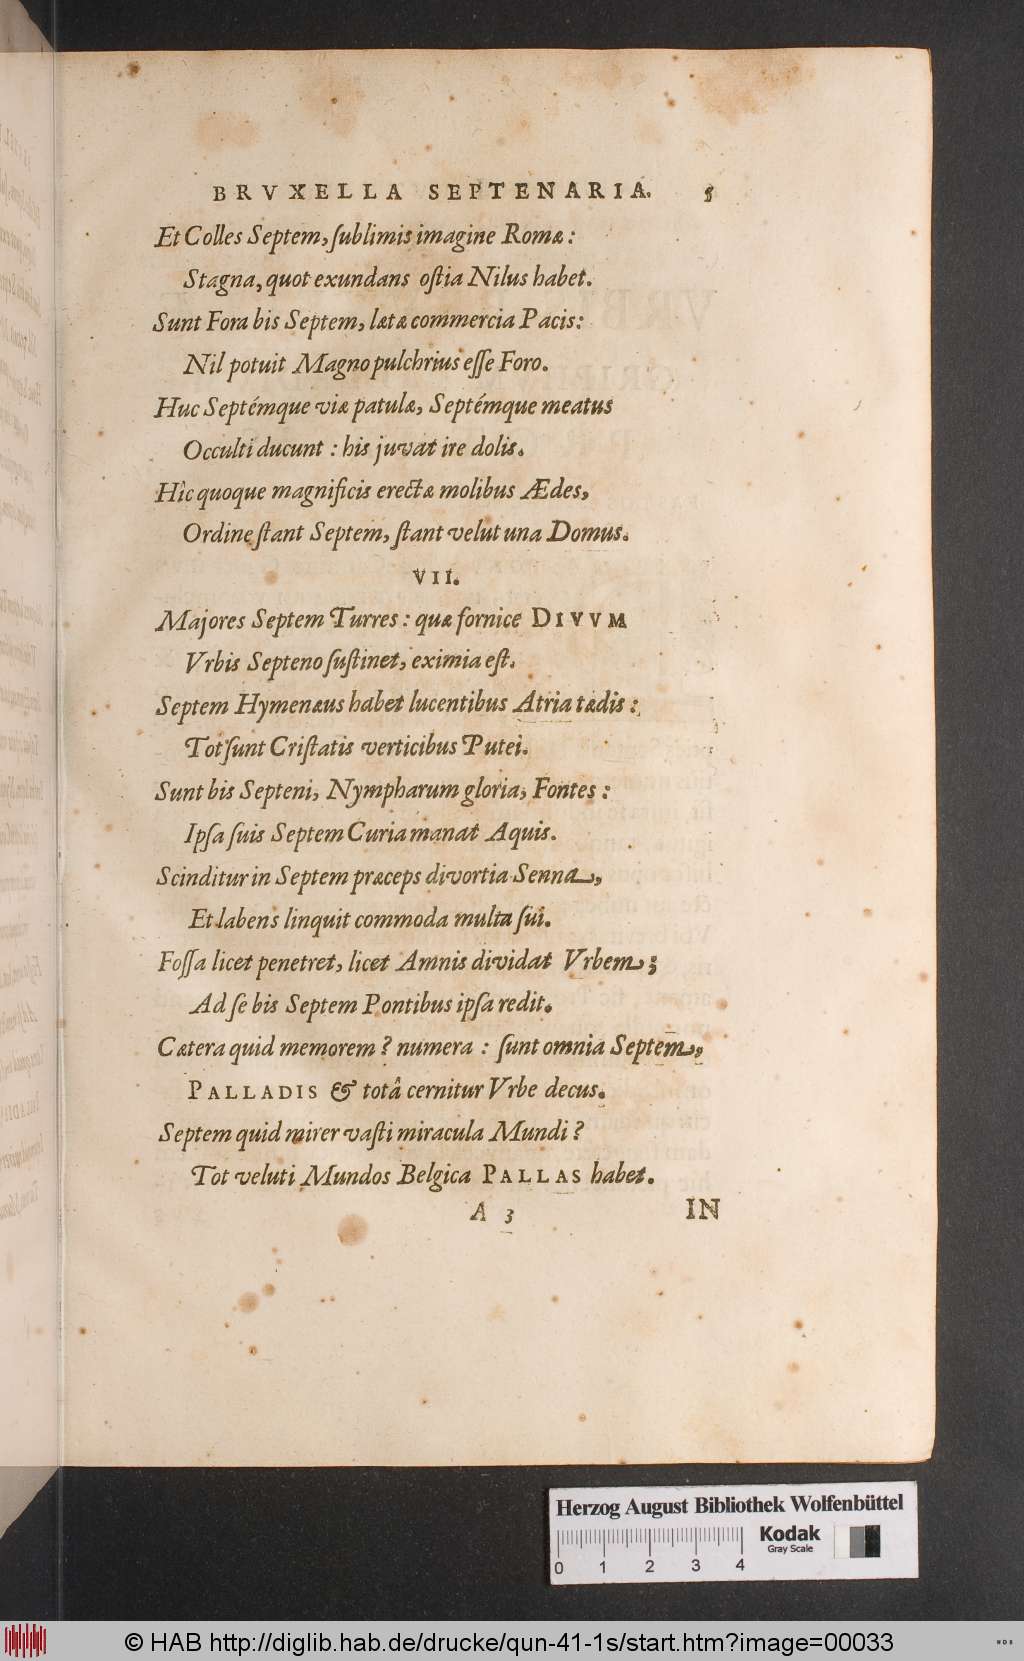 BRVXELLA SEPTENARIA. 5
Et Colles Septem, ſublimis imagine Romæ:
Stagna, quot exundans oſtia Nilus habet.
Sunt Fora bis Septem, lætæ commercia Pacis:
Nil potuit Magno pulchrius eſſe Foro.
Huc Septémque viæ patulæ, Septémque meatus
Occulti ducunt : his juvat ire dolis.
Hîc quoque magnificis erectæ molibus Ædes,
Ordine ſtant Septem, ſtant velut una Domus.
VII.
Majores Septem Turres : quæ fornice DIVVM
Vrbis Septeno ſuſtinet, eximia eſt.
Septem Hymenæus habet lucentibus Atria tædis :
Tot ſunt Criſtatis verticibus Putei.
Sunt bis Septeni, Nympharum gloria, Fontes :
Ipſa ſuis Septem Curia manat Aquis.
Scinditur in Septem præceps divortia Senna,
Et labens linquit commoda multa ſui.
Foſſa licet penetret, licet Amnis dividat Vrbem ;
Ad ſe bis Septem Pontibus ipſa redit.
Cætera quid memorem ? numera : ſunt omnia Septem,
PALLADIS & totâ cernitur Vrbe decus.
Septem quid mirer vaſti miracula Mundi ?
Tot veluti Mundos Belgica PALLAS habet.
A 3 IN
Herzog August Bibliothek Wolfenbüttel
Kodak
Gray Scale
0 1 2 3 4
© HAB http://diglib.hab.de/drucke/qun-41-1s/start.htm?image=00033